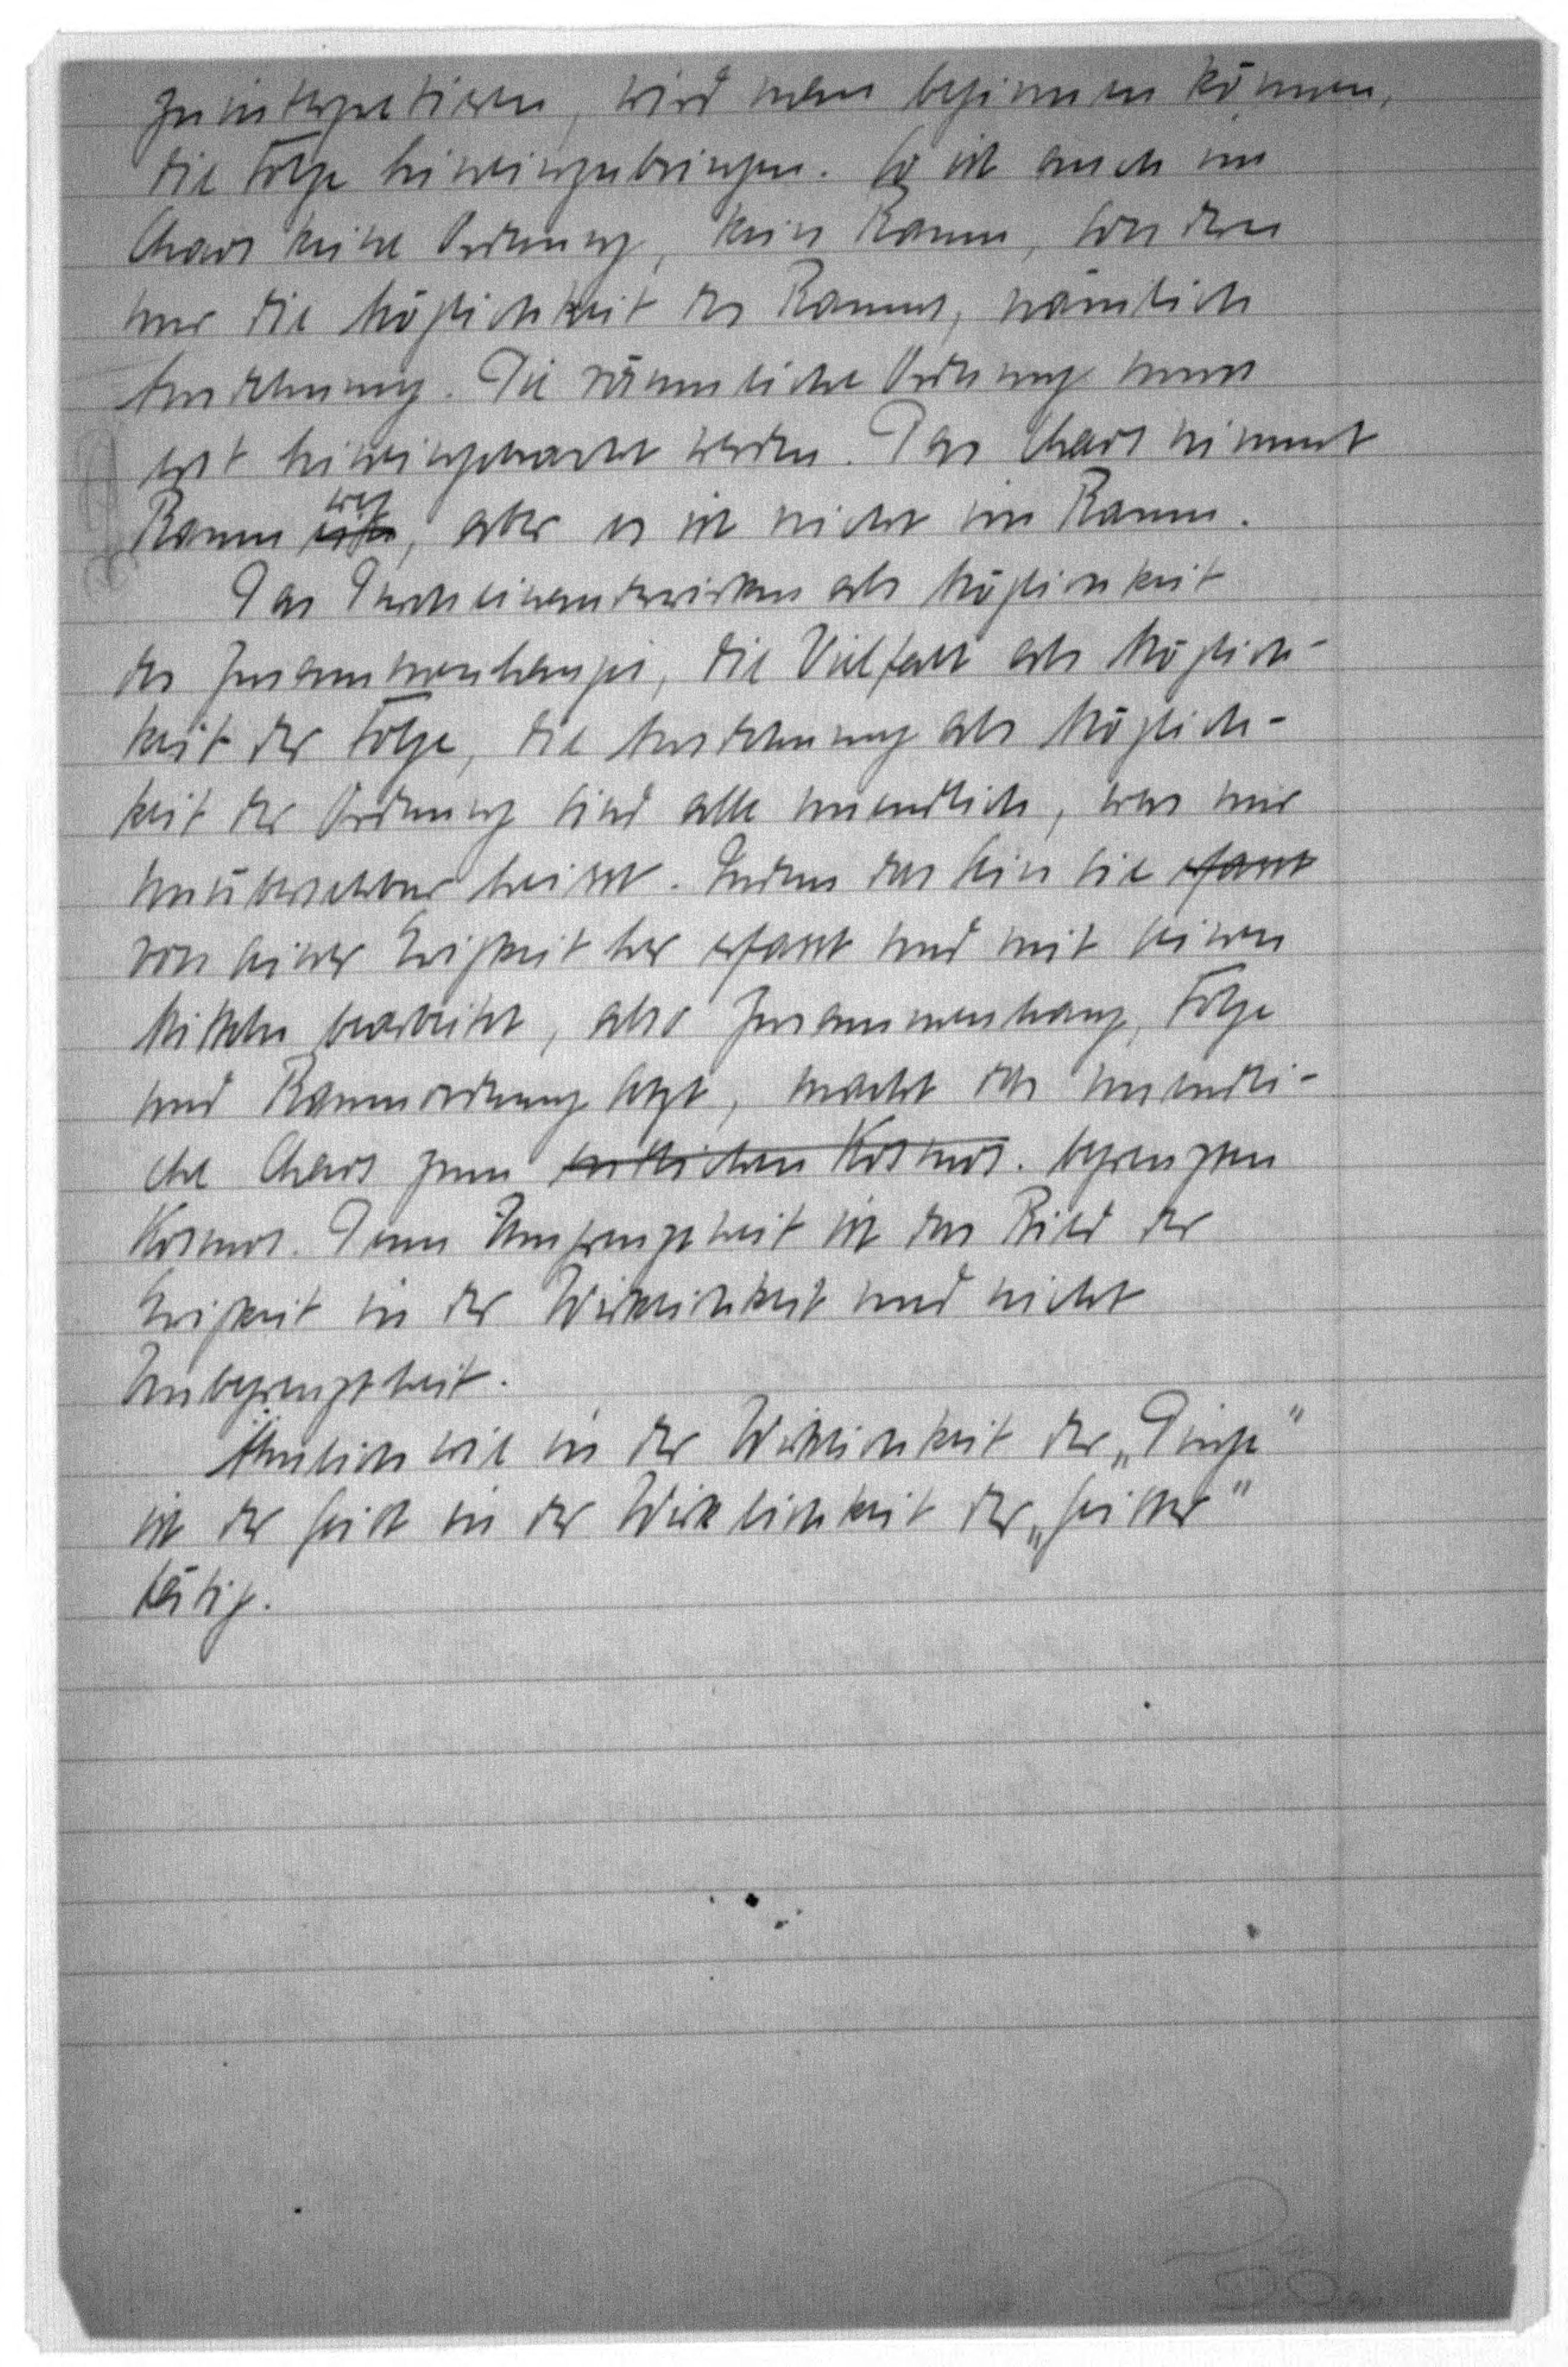 zu interpretieren, wird man beginnen können,
die Folge hineinzubringen. So ist auch im
Chaos keine Ordnung, kein Raum, sondern
nur die Möglichkeit des Raumes, nämlich
Ausdehnung. Die räumliche Ordnung muss
erst hineingebracht werden. Das Chaos nimmt
Raum weg, aber es ist nicht im Raum.
Das Durcheinanderwirken als Möglichkeit
des Zusammenhanges, die Vielfalt als Möglich-
keit der Folge, die Ausdehnung als Möglich-
keit der Ordnung sind alle unendlich, was nur
unübersehbar heisst. Indem das Sein sie erfasst
von seiner Ewigkeit her erfasst und mit seinen
Mitteln bearbeitet, also Zusammenhang, Folge
und Raumordnung setzt, macht das unendli-
che Chaos zum endlichen Kosmos. begrenzten
Kosmos. Denn Umgrenztheit ist das Bild der
Ewigkeit in der Wirklichkeit und nicht
Unbegrenztheit.
Ähnlich wie in der Wirklichkeit der „Dinge"
ist der Geist in der Wirklichkeit der „Geister"
tätig.